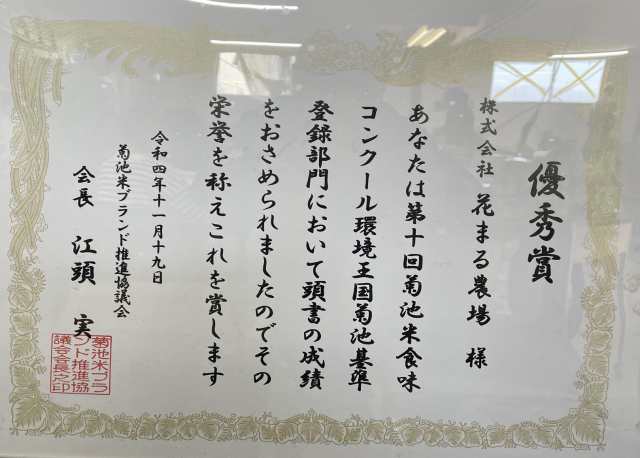 優秀賞
株式会社 花まる農場 様
あなたは第十回菊池米食味
コンクール環境王国菊池基準
登録部門において頭書の成績
をおさめられましたのでその
栄誉を称えこれを賞します
令和四年十一月十九日
菊池米ブランド推進協議会
会長 江頭 実
菊池米ブラ
ンド推進協
議会会長之印